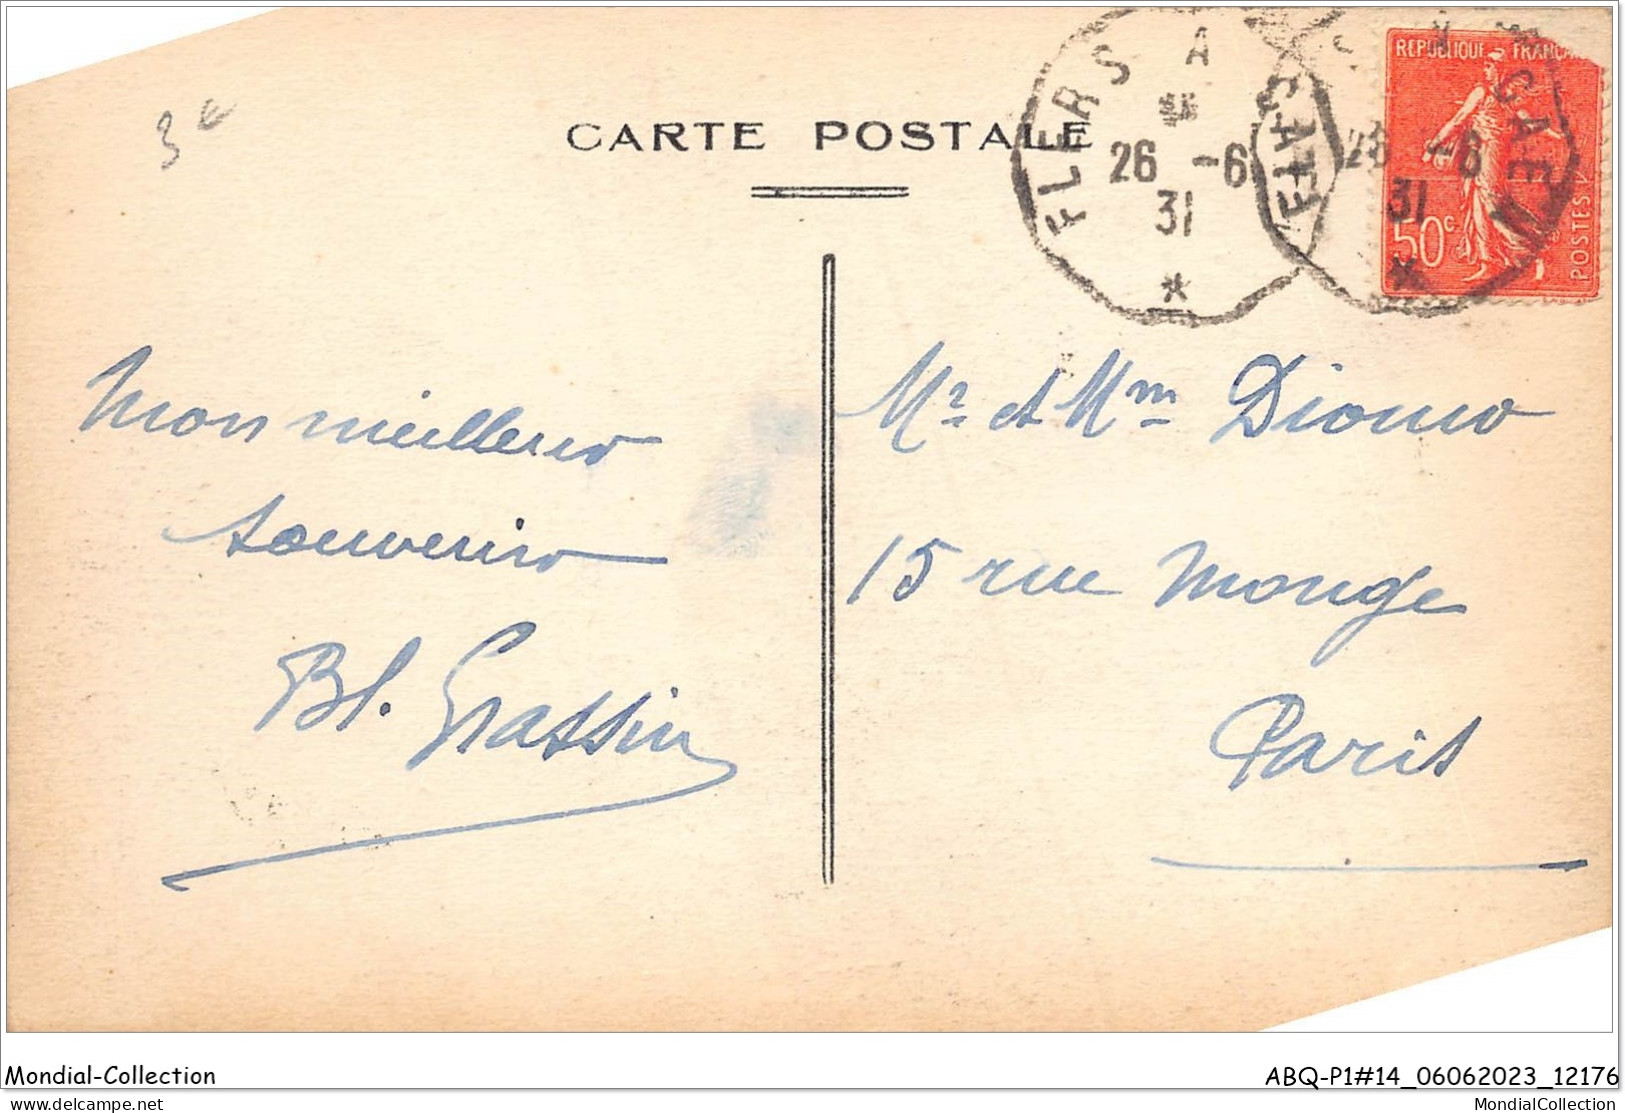 3€
CARTE POSTALE
FLERS A
26 -6
31
*
FLERS A CAEN
26 -6
31
*
REPUBLIQUE FRANCAISE
50c
POSTES
Mon meilleurs
souvenirs
Bl. Grassin
Mr et Mm
15 rue Monge
Paris
Mondial-Collection
ABQ-P1#14_06062023_12176
delcampe.net
MondialCollection